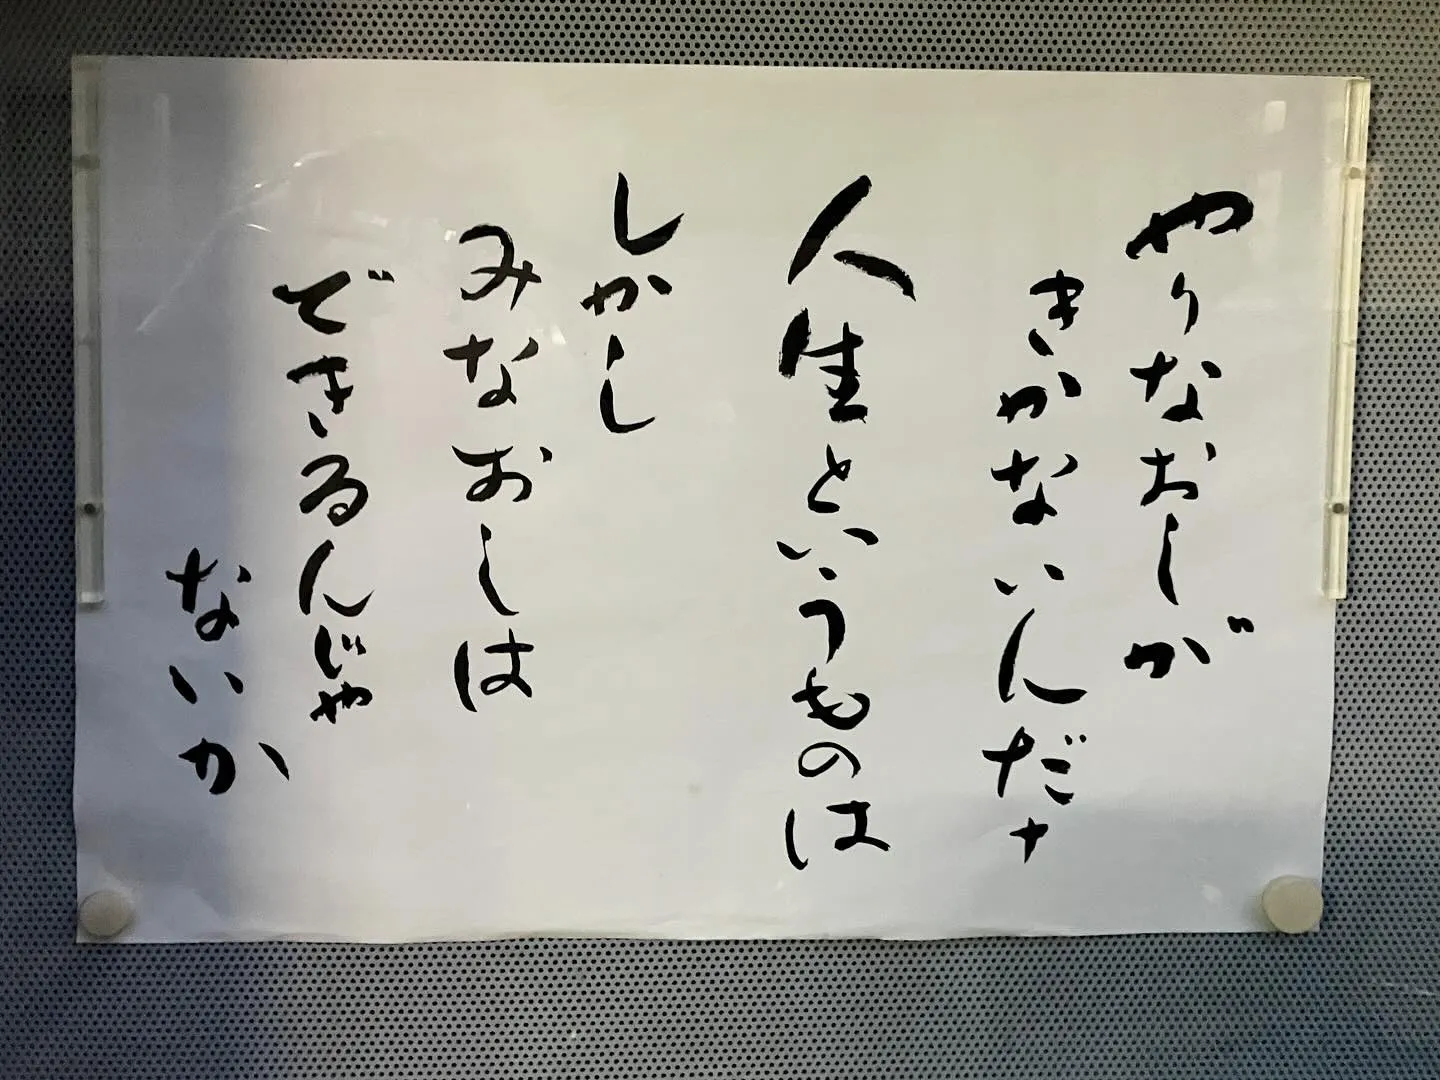 やりなおしが
きかないんだナ
人生というものは
しかし
みなおしは
できるんじゃ
ないか